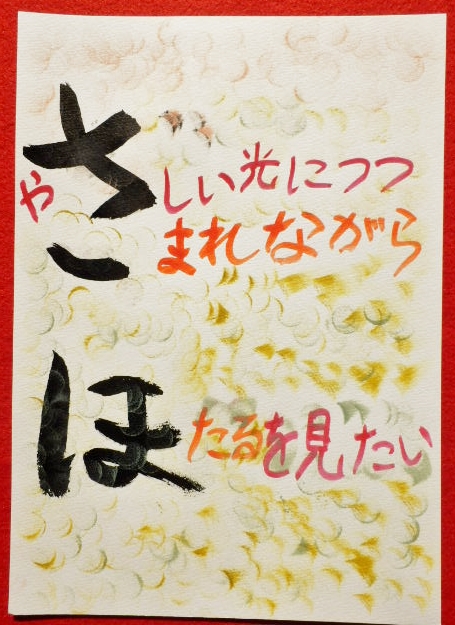 やさしい光につつ
まれながら
ほたるを見たい